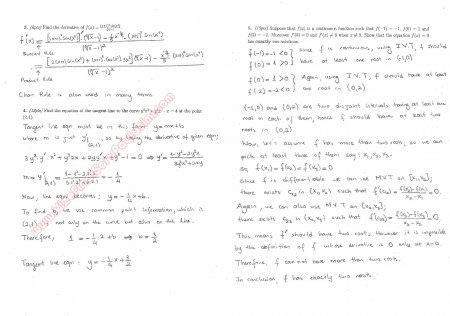 3. (8pts) Find the derivative of f(x) =
f'(x) = [(lnx)² sin(x³)]' (∜x - 1) -
(∜x - 1)²
Quotient Rule
Product Rule
Chain Rule is also used in many terms
4. (12pts) Find the equation of the tangent line to the curve y³x² + y²x - x = 4 at the point
(2,1).
Tangent line eqn must be in this form y=mx+b
where m is just y'|(2,1), so by taking the derivative of given eqn;
Now, line eqn becomes; y = -1/4 x + b.
To find b, we use common point information, which is
(2,1), is not only on the curve but also on this line.
Therefore, 1 = -1/4 · 2 + b ⇒ b = 3/2
Tangent line eqn: y = -1/4 x + 3/2
5. (10pts) Suppose that f(x) is a continuous function such that f(-1) = -1, f(0) = 1 and
f(2) = -2. Moreover f'(0) = 0 and f'(x) ≠ 0 when x ≠ 0. Show that the equation f(x) = 0
has exactly two solutions.
f(-1) = -1 < 0 } Since f is continuous, using I.V.T, f should
f(0) = 1 > 0 } have at least one root in (-1,0)
f(0) = 1 > 0 } Again, using I.V.T, f should have at least
f(2) = -2 < 0 } one root in (0,2)
(-1,0) and (0,2) are two disjoint intervals having at least one
root in each of them, hence f should have at least two
roots in (-1,2).
Now, let's assume f has more than two roots, so we can
pick at least three of them say: x₁, x₂, x₃.
So f(x₁) = f(x₂) = f(x₃) = 0.
Since f is differentiable we can use MVT on [x₁,x₂];
there exists c₁₂ in (x₁,x₂) such that f'(c₁₂) = f(x₂)-f(x₁) / x₂-x₁ = 0.
Again, we can also use MVT on [x₂,x₃];
there exists c₂₃ in (x₂,x₃) such that f'(c₂₃) = f(x₃)-f(x₂) / x₃-x₂ = 0.
This means f' should have two roots. However it is impossible
by the definition of f whose derivative is 0 only at x=0.
Therefore, f can not have more than two roots.
In conclusion f has exactly two roots.